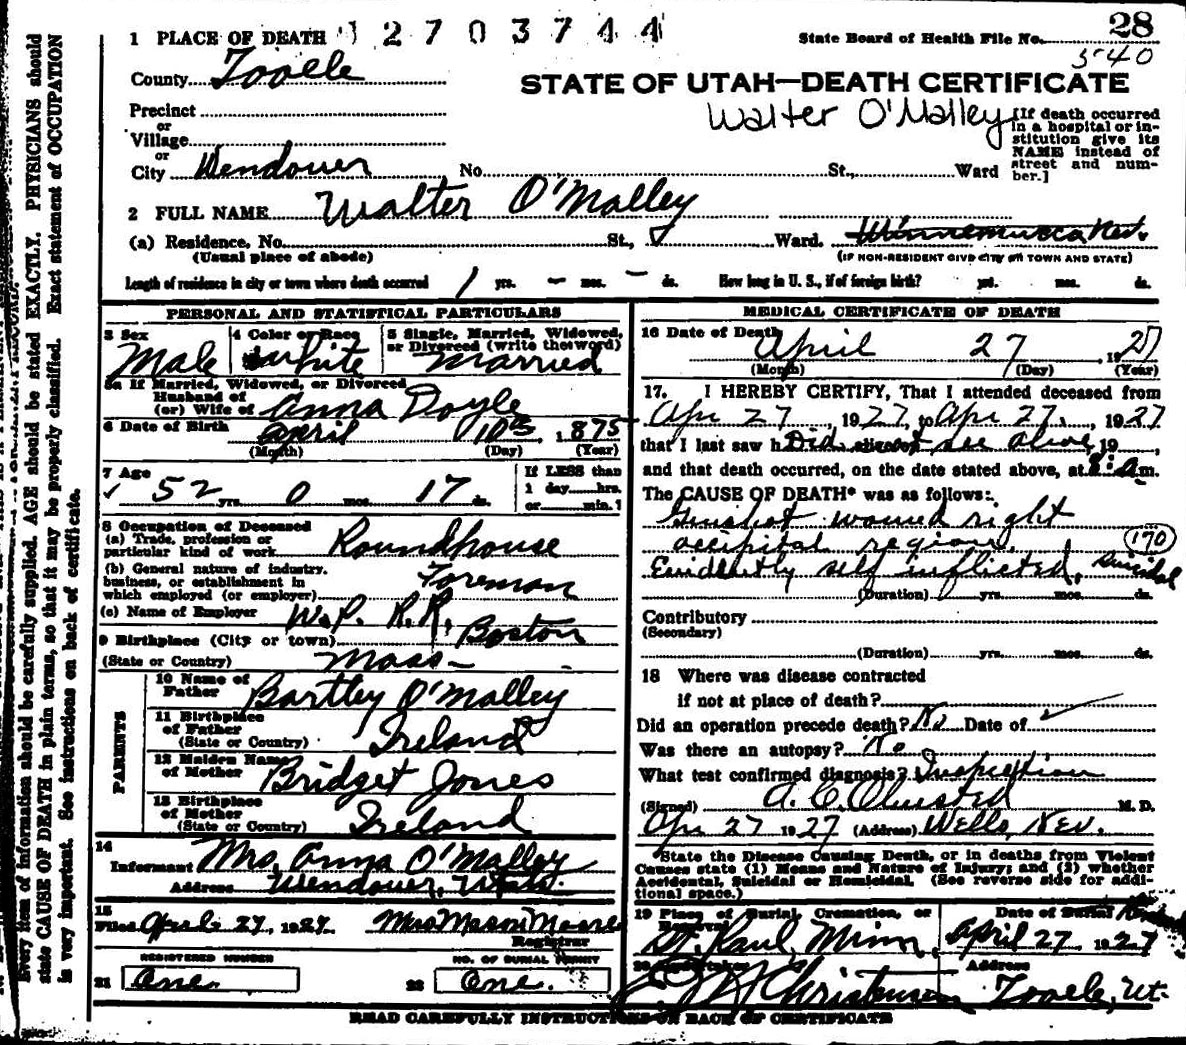 1 PLACE OF DEATH 2703744
State Board of Health File No. 28
540
County Tooele
STATE OF UTAH—DEATH CERTIFICATE
Walter O'Malley
Precinct
or
Village
or
City Wendover No. St., Ward
[If death occurred
in a hospital or in-
stitution give its
NAME instead of
street and num-
ber.]
2 FULL NAME Walter O'Malley
(a) Residence, No. St., Ward. Winnemucca Nev.
(Usual place of abode)
(IF NON-RESIDENT GIVE CITY OR TOWN AND STATE)
Length of residence in city or town where death occurred 1 yrs. — mos. — ds. How long in U. S., if of foreign birth? yrs. mos. ds.
PERSONAL AND STATISTICAL PARTICULARS
3 Sex
Male
4 Color or Race
White
5 Single, Married, Widowed,
or Divorced (write the word)
Married
5a If Married, Widowed, or Divorced
Husband of
(or) Wife of Anna Doyle
6 Date of Birth April 10th 1875
(Month) (Day) (Year)
7 Age
52 yrs. 0 mos. 17 ds.
If LESS than
1 day hrs.
or min.?
8 Occupation of Deceased
(a) Trade, profession or
particular kind of work Roundhouse
(b) General nature of industry,
business, or establishment in
which employed (or employer) Foreman
(c) Name of Employer W.P. R.R.
9 Birthplace (City or town) Boston
(State or Country) Mass
PARENTS
10 Name of
Father Bartley O'Malley
11 Birthplace
of Father
(State or Country) Ireland
12 Maiden Name
of Mother Bridget Jones
13 Birthplace
of Mother
(State or Country) Ireland
14
Informant Mrs Anna O'Malley
Address Wendover, Utah.
15
Filed April 27, 1927 Mrs Mason Moore
Registrar
REGISTERED NUMBER
21 One.
NO. OF BURIAL PERMIT
22 One.
MEDICAL CERTIFICATE OF DEATH
16 Date of Death April 27 1927
(Month) (Day) (Year)
17. I HEREBY CERTIFY, That I attended deceased from
Apr 27, 1927, to Apr 27, 1927
that I last saw h Did not see alive, 19
and that death occurred, on the date stated above, at 8: a m.
The CAUSE OF DEATH* was as follows:
Gunshot wound right
occipital region. 170
Evidently self inflicted, Suicidal
(Duration) yrs. mos. ds.
Contributory
(Secondary)
(Duration) yrs. mos. ds.
18 Where was disease contracted
if not at place of death?
Did an operation precede death? No Date of
Was there an autopsy? No
What test confirmed diagnosis? Inspection
(Signed) A. C. Olmsted M. D.
Apr 27 1927 (Address) Wells, Nev.
*State the Disease Causing Death, or in deaths from Violent
Causes state (1) Means and Nature of Injury; and (2) whether
Accidental, Suicidal or Homicidal. (See reverse side for addi-
tional space.)
19 Place of Burial, Cremation, or
Removal
St. Paul, Minn,
Date of Burial
April 27 1927
Christensen
Address
Tooele, Ut.
READ CAREFULLY INSTRUCTIONS ON BACK OF CERTIFICATE
Every item of information should be carefully supplied. AGE should be stated EXACTLY. PHYSICIANS should
state CAUSE OF DEATH in plain terms, so that it may be properly classified. Exact statement of OCCUPATION
is very important. See instructions on back of certificate.